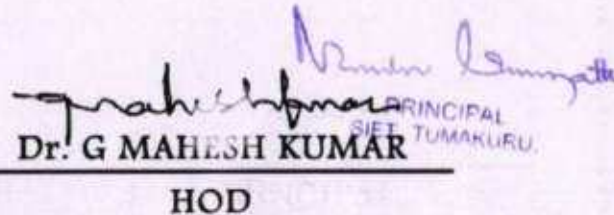 PRINCIPAL
SIET, TUMAKURU.
Dr. G MAHESH KUMAR
HOD